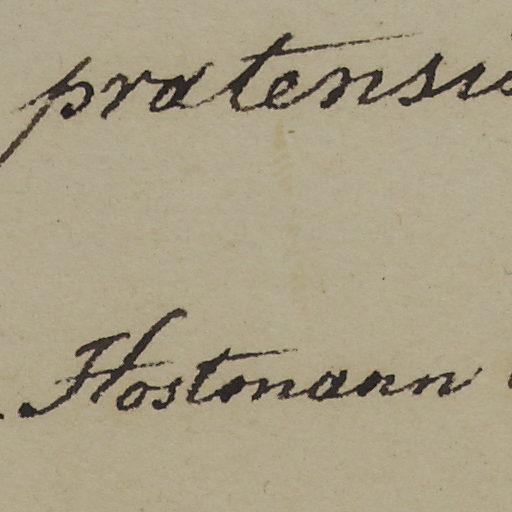 pratensis
Hostmann